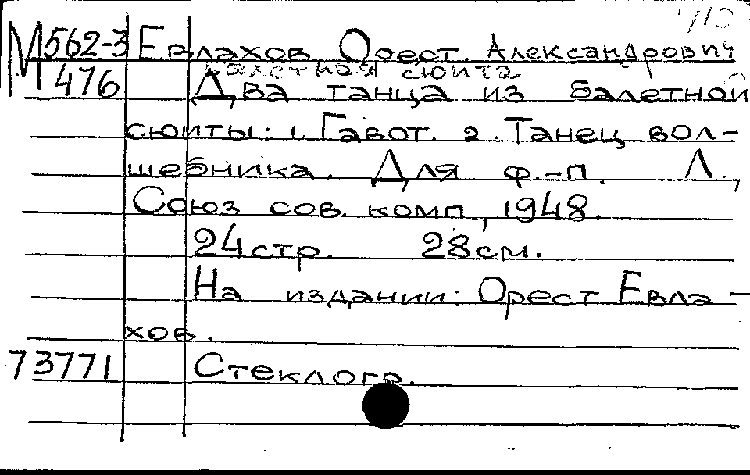 М 562-3 Евлахов Орест Александрович
476 Балетная сюита
Два танца из балетной
сюиты: 1. Гавот. 2. Танец вол-
шебника. Для ф.-п. Л.,
Союз сов. комп., 1948.
24 стр. 28 см.
На издании: Орест Евла-
хов.
73771 Стеклогр.